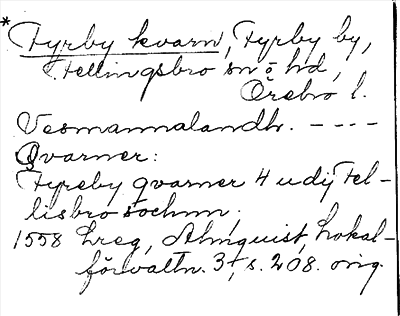 * Fyrby kvarn, Fyrby by,
Fellingsbro sn o hd,
Örebro l.
Vesmannalandh. - - - -
Qvarner:
Fyreby qvarner 4 udij Fel-
lisbro sochnn;
1558 Lreg, Almquist, Lokal-
förvaltn. 3:, s. 208. orig.